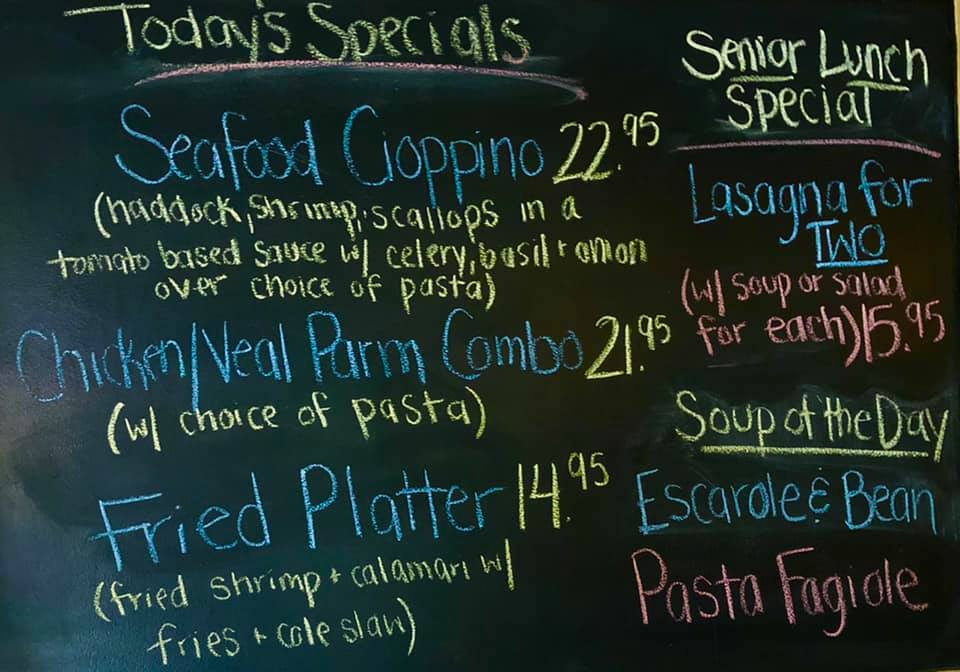 Today's Specials
Seafood Cioppino 22.95
(haddock, shrimp, scallops in a
tomato based sauce w/ celery, basil + onion
over choice of pasta)
Chicken/Veal Parm Combo 21.95
(w/ choice of pasta)
Fried Platter 14.95
(fried shrimp + calamari w/
fries + cole slaw)
Senior Lunch
Special
Lasagna for
TWO
(w/ soup or salad
for each) 15.95
Soup of the Day
Escarole & Bean
Pasta Fagiole